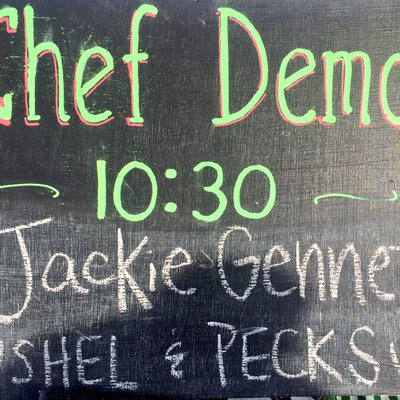 Chef Demo
10:30
Jackie Genne
SHEL & PECKS